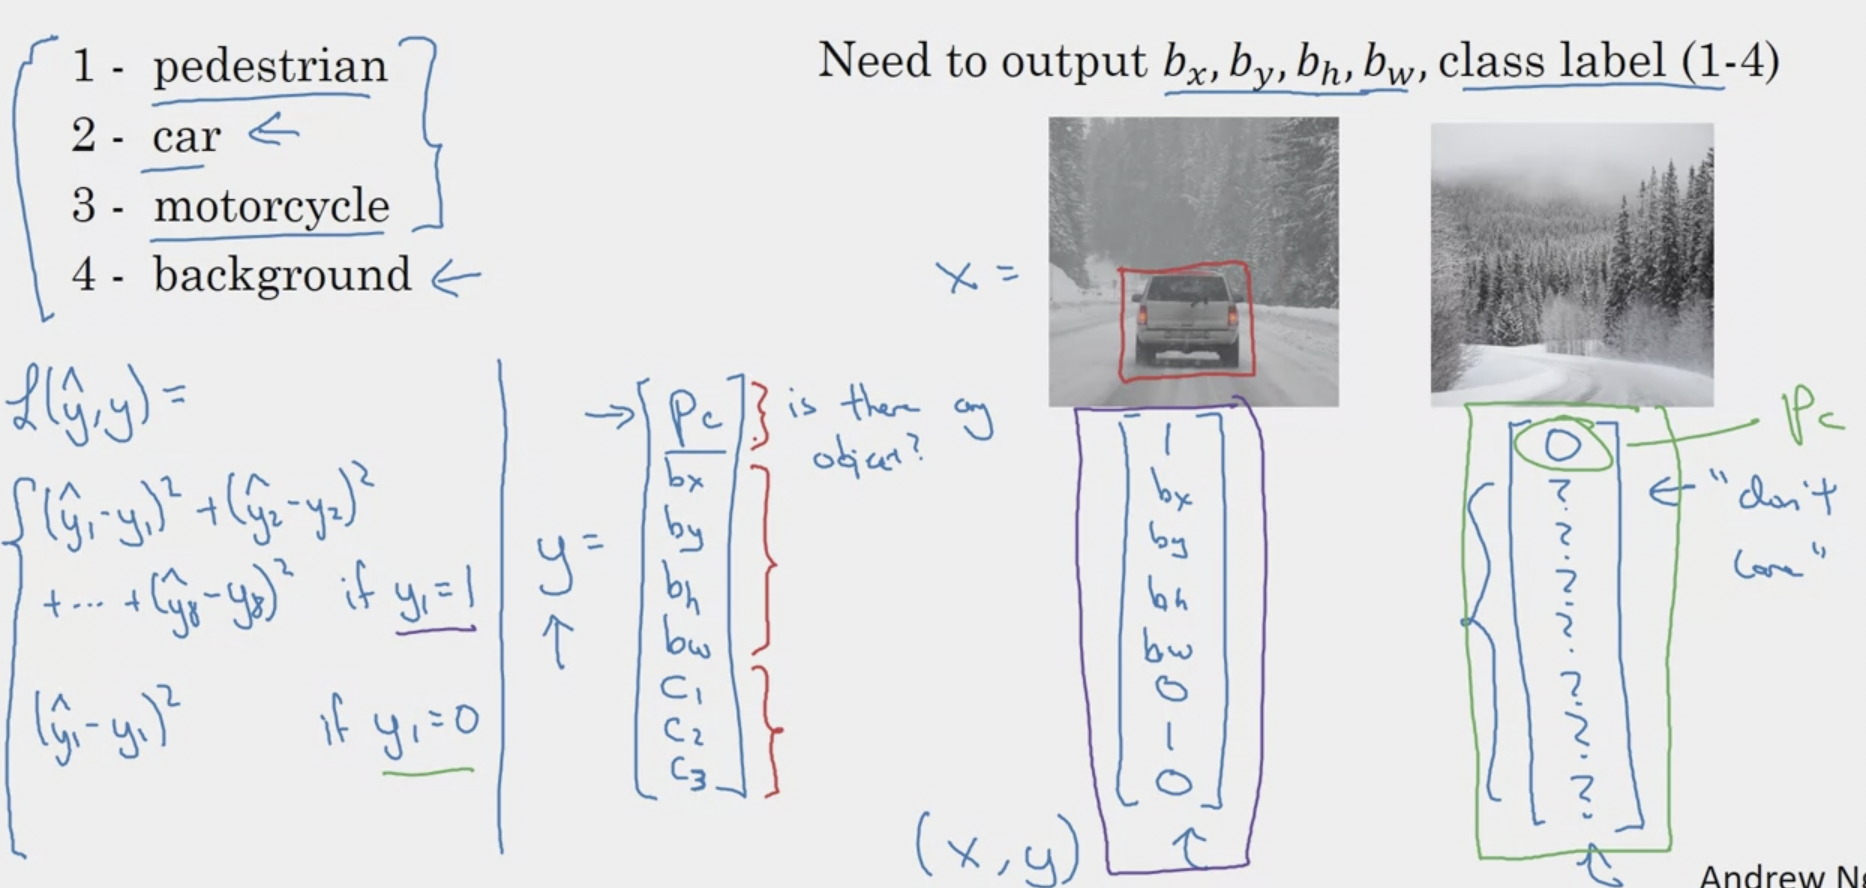 1 - pedestrian
2 - car ←
3 - motorcycle
4 - background ←
Need to output bx, by, bh, bw, class label (1-4)
x =
ℒ(ŷ,y) =
(ŷ1-y1)² + (ŷ2-y2)²
+ ... + (ŷ8-y8)² if y1=1
(ŷ1-y1)² if y1=0
y =
→ Pc
bx
by
bh
bw
C1
C2
C3
is there any
object?
(x, y)
1
bx
by
bh
bw
0
1
0
0
?
?
?
?
?
?
?
Pc
← "don't
care"
Andrew N